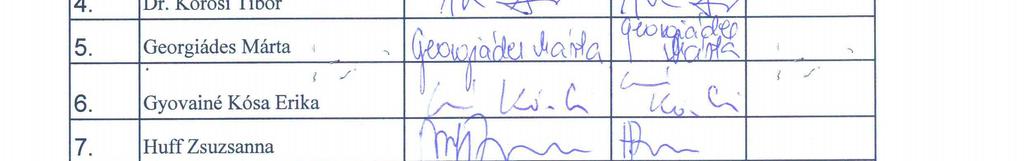 4. Dr. Kőrösi Tibor
5. Georgiádes Márta Georgiádes Márta Georgiádes Márta
6. Gyovainé Kósa Erika
7. Huff Zsuzsanna